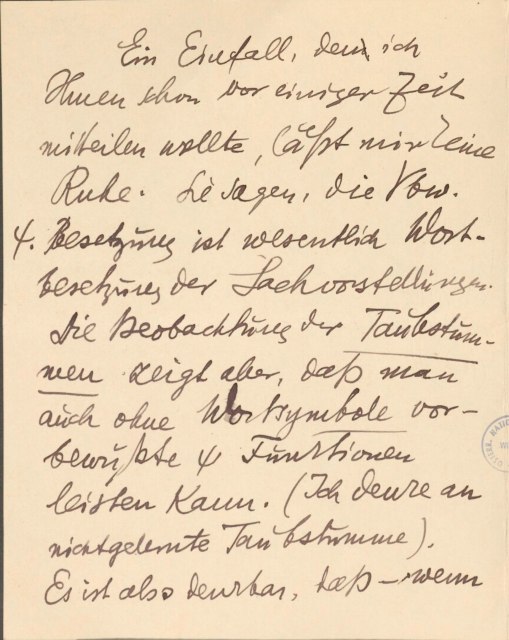 Ein Einfall, den ich
Ihnen schon vor einiger Zeit
mitteilen wollte, läßt mir keine
Ruhe. Sie sagen, die Vbw.
4. Besetzung ist wesentlich Wort-
besetzung der Sachvorstellungen.
Die Beobachtung der Taubstum-
men zeigt aber, daß man
auch ohne Wortsymbole vor-
bewußte ψ Funktionen
leisten kann. (Ich denke an
nichtgelernte Taubstumme).
Es ist also denkbar, daß – wenn